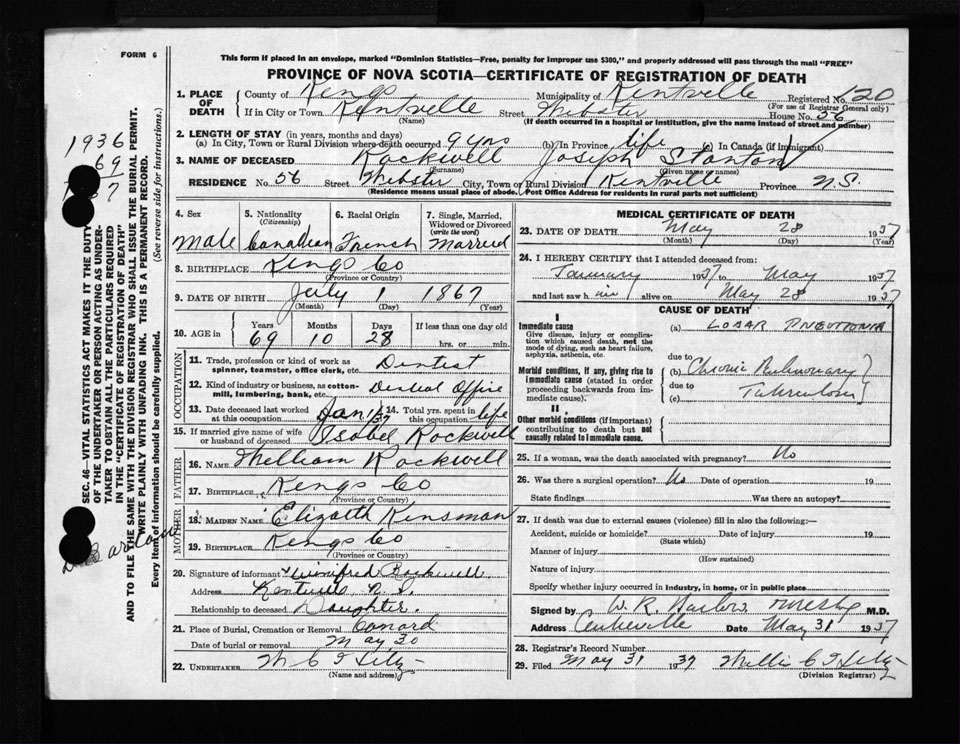 FORM 6
This form if placed in an envelope, marked "Dominion Statistics—Free, penalty for improper use $300," and properly addressed will pass through the mail "FREE"
PROVINCE OF NOVA SCOTIA—CERTIFICATE OF REGISTRATION OF DEATH
1. PLACE OF DEATH County of Kings Municipality of Kentville Registered No. 120
(For use of Registrar General only)
If in City or Town Kentville Street Webster House No. 56
(Name) (If death occurred in a hospital or institution, give the name instead of street and number)
2. LENGTH OF STAY (in years, months and days)
(a) In City, Town or Rural Division where death occurred 9 yrs (b) In Province life (c) In Canada (if immigrant)
3. NAME OF DECEASED Rockwell Joseph Stanton
(Surname) (Given name or names)
RESIDENCE No. 56 Street Webster City, Town or Rural Division Kentville Province N.S.
(Residence means usual place of abode. Post Office Address for residents in rural parts not sufficient)
1936
69
SEC. 46—VITAL STATISTICS ACT MAKES IT THE DUTY
OF THE UNDERTAKER OR PERSON ACTING AS UNDER-
TAKER TO OBTAIN ALL THE PARTICULARS REQUIRED
IN THE "CERTIFICATE OF REGISTRATION OF DEATH"
AND TO FILE THE SAME WITH THE DIVISION REGISTRAR WHO SHALL ISSUE THE BURIAL PERMIT.
WRITE PLAINLY WITH UNFADING INK. THIS IS A PERMANENT RECORD.
Every item of information should be carefully supplied. (See reverse side for instructions.)
4. Sex Male
5. Nationality (Citizenship) Canadian
6. Racial Origin French
7. Single, Married, Widowed or Divorced (write the word) Married
8. BIRTHPLACE Kings Co
(Province or Country)
9. DATE OF BIRTH July 1 1867
(Month) (Day) (Year)
10. AGE in Years 69 Months 10 Days 28 If less than one day old hrs. or min.
OCCUPATION
11. Trade, profession or kind of work as spinner, teamster, office clerk, etc. Dentist
12. Kind of industry or business, as cotton-mill, lumbering, bank, etc. Dental Office
13. Date deceased last worked at this occupation Jan 1/37 14. Total yrs. spent in this occupation life
15. If married give name of wife or husband of deceased Isobel Rockwell
FATHER
16. NAME William Rockwell
17. BIRTHPLACE Kings Co
(Province or Country)
MOTHER
18. MAIDEN NAME Elizabth Kinsman
19. BIRTHPLACE Kings Co
(Province or Country)
20. Signature of informant Winifred Rockwell
Address Kentville N.S.
Relationship to deceased Daughter.
21. Place of Burial, Cremation or Removal Canard
Date of burial or removal May 30
22. UNDERTAKER
(Name and address)
MEDICAL CERTIFICATE OF DEATH
23. DATE OF DEATH May 28 1937
(Month) (Day) (Year)
24. I HEREBY CERTIFY that I attended deceased from:
January 1937 to May 1937
and last saw him alive on May 28 1937
CAUSE OF DEATH
I
Immediate cause
Give disease, injury or complication which caused death, not the mode of dying, such as heart failure, asphyxia, asthenia, etc.
(a) LOBAR PNEUMONIA
due to
Morbid conditions, if any, giving rise to immediate cause (stated in order proceeding backwards from immediate cause).
(b) Chronic Pulmonary
due to
(c) Tuberculosis
II
Other morbid conditions (if important) contributing to death but not causally related to immediate cause.
25. If a woman, was the death associated with pregnancy? No
26. Was there a surgical operation? No Date of operation 19
State findings Was there an autopsy?
27. If death was due to external causes (violence) fill in also the following:—
Accident, suicide or homicide? Date of injury 19
(State which)
Manner of injury
(How sustained)
Nature of injury
Specify whether injury occurred in industry, in home, or in public place
Signed by W. R. Barlow M.D.
Address Centreville Date May 31 1937
28. Registrar's Record Number
29. Filed May 31 1937
(Division Registrar)